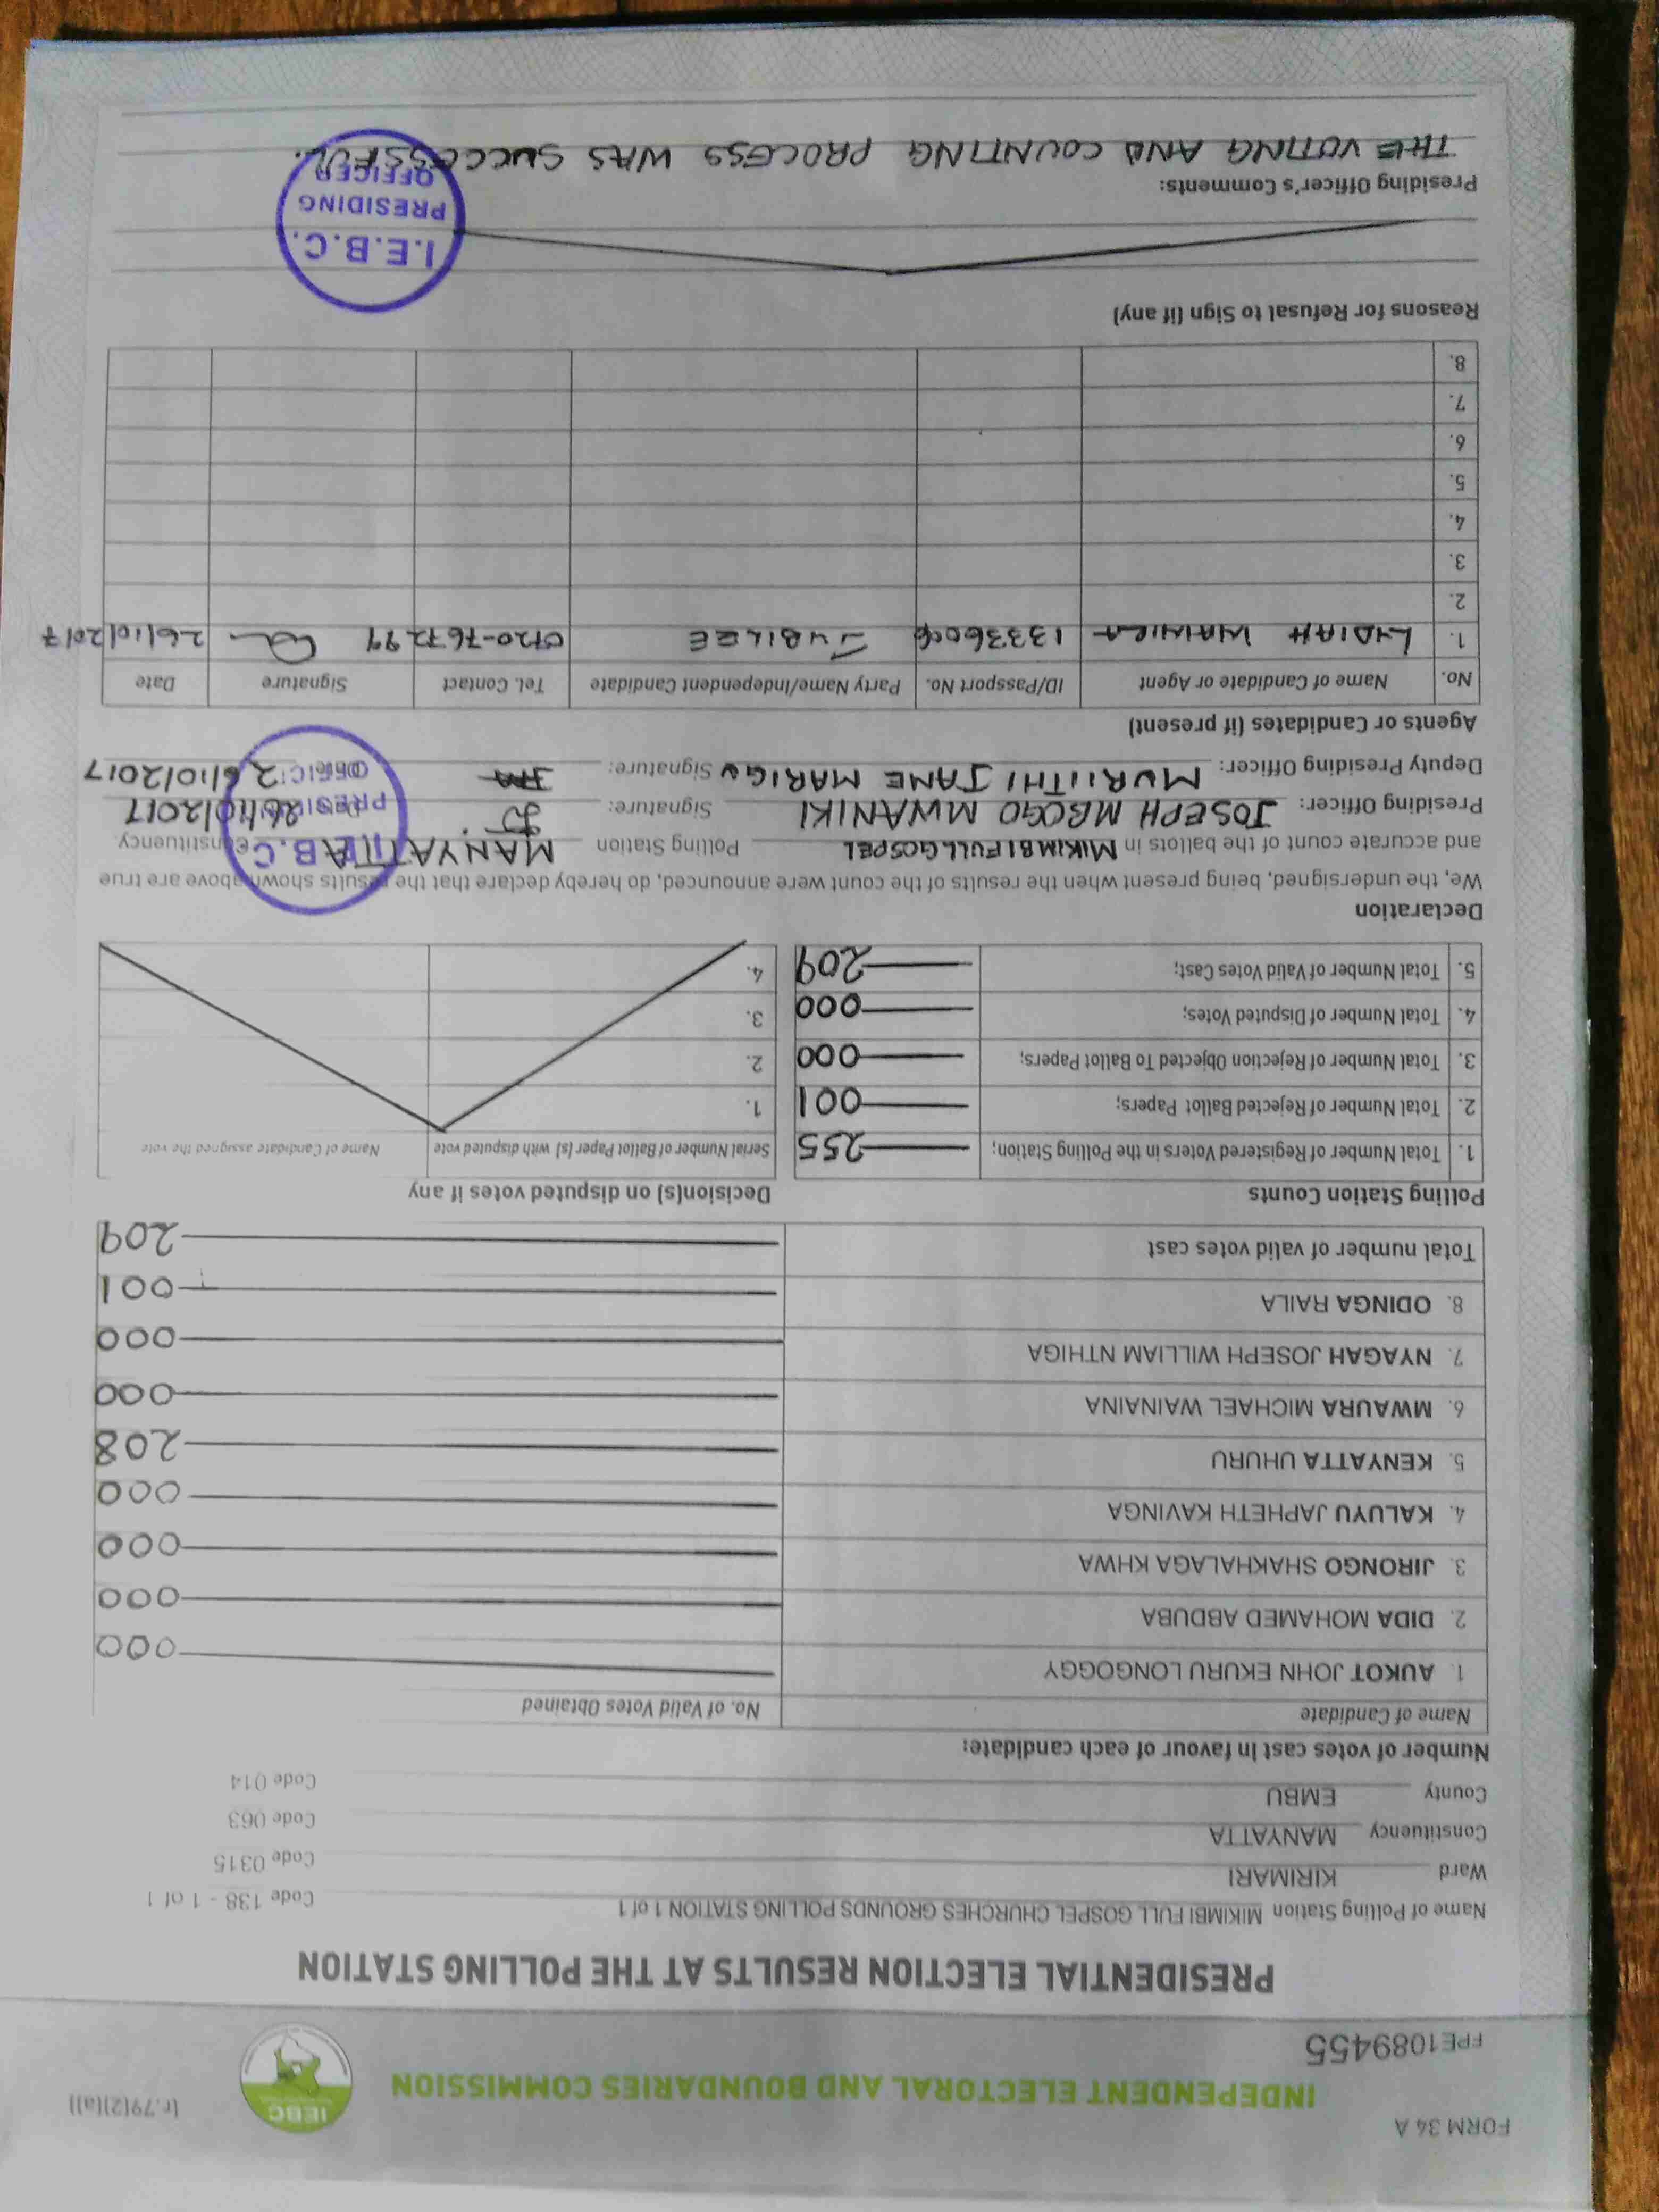 FORM 34 A
(r.79(2)(a))
INDEPENDENT ELECTORAL AND BOUNDARIES COMMISSION
IEBC
FPE1089455
PRESIDENTIAL ELECTION RESULTS AT THE POLLING STATION
Name of Polling Station MIKIMBI FULL GOSPEL CHURCHES GROUNDS POLLING STATION 1 of 1 Code 138 - 1 of 1
Ward KIRIMARI Code 0315
Constituency MANYATTA Code 063
County EMBU Code 014
Number of votes cast in favour of each candidate:
Name of Candidate No. of Valid Votes Obtained
1. AUKOT JOHN EKURU LONGOGGY 000
2. DIDA MOHAMED ABDUBA 000
3. JIRONGO SHAKHALAGA KHWA 000
4. KALUYU JAPHETH KAVINGA 000
5. KENYATTA UHURU 208
6. MWAURA MICHAEL WAINAINA 000
7. NYAGAH JOSEPH WILLIAM NTHIGA 000
8. ODINGA RAILA 001
Total number of valid votes cast 209
Polling Station Counts
1. Total Number of Registered Voters in the Polling Station; 255
2. Total Number of Rejected Ballot Papers; 001
3. Total Number of Rejection Objected To Ballot Papers; 000
4. Total Number of Disputed Votes; 000
5. Total Number of Valid Votes Cast; 209
Decision(s) on disputed votes if any
Serial Number of Ballot Paper (s) with disputed vote Name of Candidate assigned the vote
1.
2.
3.
4.
Declaration
We, the undersigned, being present when the results of the count were announced, do hereby declare that the results shown above are true
and accurate count of the ballots in MIKIMBI FULL GOSPEL Polling Station MANYATTA Constituency
Presiding Officer: JOSEPH MBOGO MWANIKI Signature: 26/10/2017
Deputy Presiding Officer: MURIITHI JANE MARIGU Signature: 26/10/2017
I.E.B.C.
PRESIDING
OFFICER
Agents or Candidates (if present)
No. Name of Candidate or Agent ID/Passport No. Party Name/Independent Candidate Tel. Contact Signature Date
1. LYDIAH 13336006 JUBILEE 0720-767299 26/10/2017
2.
3.
4.
5.
6.
7.
8.
Reasons for Refusal to Sign (if any)
I.E.B.C.
PRESIDING
OFFICER
Presiding Officer's Comments:
THE VOTING AND COUNTING PROCESS WAS SUCCESSFUL.